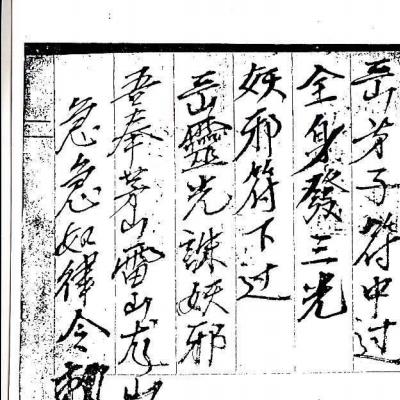 弟子符中过
全身發三光
妖邪符下过
靈光誅妖邪
吾奉茅山雷山龙山
急急如律令